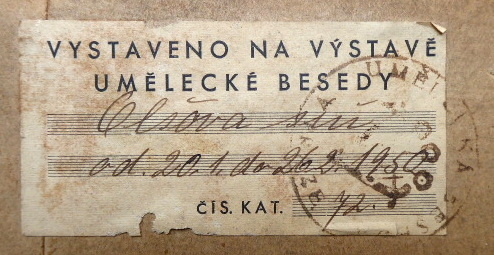 VYSTAVENO NA VÝSTAVĚ
UMĚLECKÉ BESEDY
Alšova síň
od 20.1. do 26.2. 1950
ČÍS. KAT. 72.
UMĚLECKÁ BESEDA